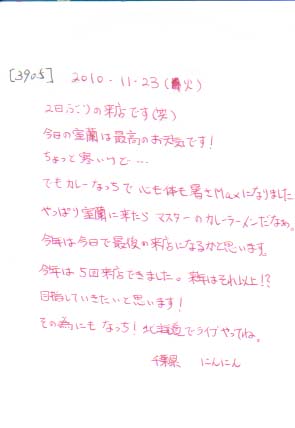 [3905] 2010.11.23(火)
2日ぶりの来店です(笑)
今日の室蘭は最高のお天気です!
ちょっと寒いけど…
でもカレーなっちで心も体も暑さMaxになりました
やっぱり室蘭に来たらマスターのカレーラーメンだなぁ。
今年は今日で最後の来店になるかと思います。
今年は5回来店できました。来年はそれ以上!?
目指していきたいと思います!
その為にもなっち!北海道でライブやってね。
千葉県 にんにん